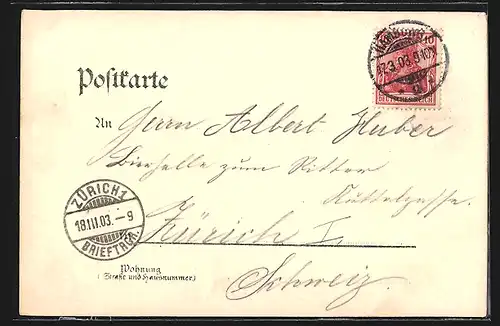 Postkarte
10
17.3.03.9-10
DEUTSCHES REICH
An Herrn Albert Huber
Bierhalle zum Ritter
Kuttelgasse.
Zürich I
Schweiz.
ZÜRICH 1
18.III.03.-9
BRIEFTRGR.
Wohnung
(Straße und Hausnummer)